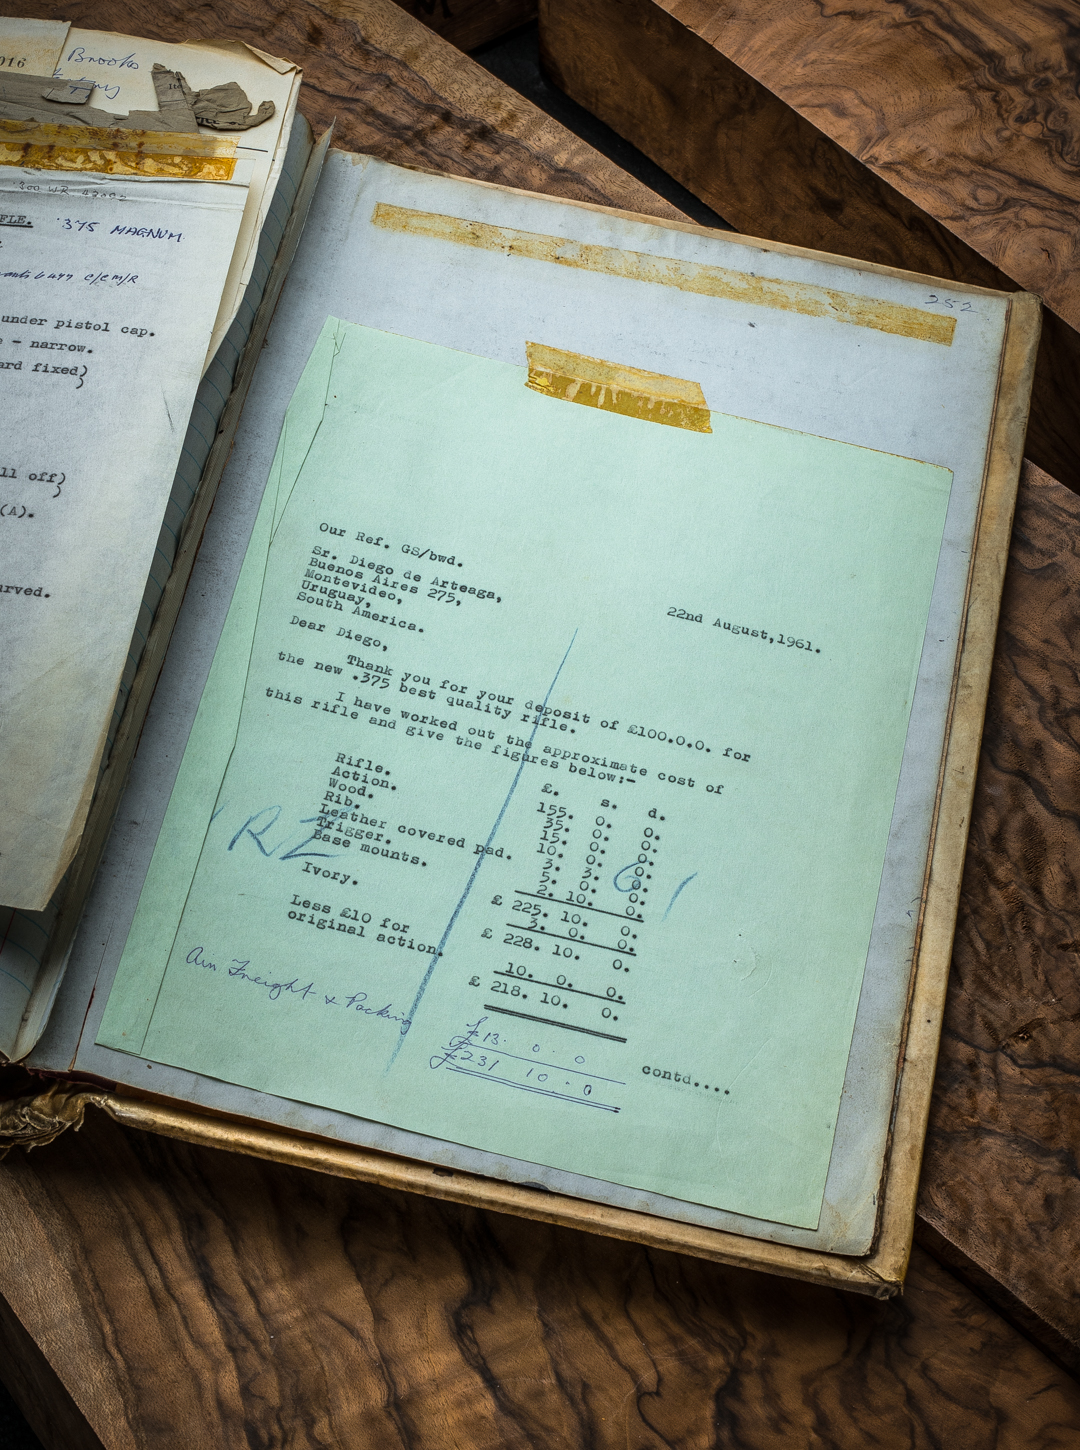 016
Brooks
.300 WR 42092
FLE. .375 MAGNUM
under pistol cap.
- narrow.
ard fixed)
ll off)
(A).
urved.
252
Our Ref. GS/bwd.
Sr. Diego de Arteaga,
Buenos Aires 275,
Montevideo,
Uruguay,
South America.
22nd August,1961.
Dear Diego,
Thank you for your deposit of £100.0.0. for
the new .375 best quality rifle.
I have worked out the approximate cost of
this rifle and give the figures below:-
£. s. d.
Rifle. 155. 0. 0.
Action. 35. 0. 0.
Wood. 15. 0. 0.
Rib. 10. 0. 0.
Leather covered pad. 3. 3. 0.
Trigger. 5. 0.
Base mounts. 2. 10. 0.
£ 225. 10. 0.
Ivory. 3. 0. 0.
£ 228. 10. 0.
Less £10 for
original action. 10. 0. 0.
£ 218. 10. 0.
Air Freight & Packing £13. 0. 0
£231 10. 0
contd....